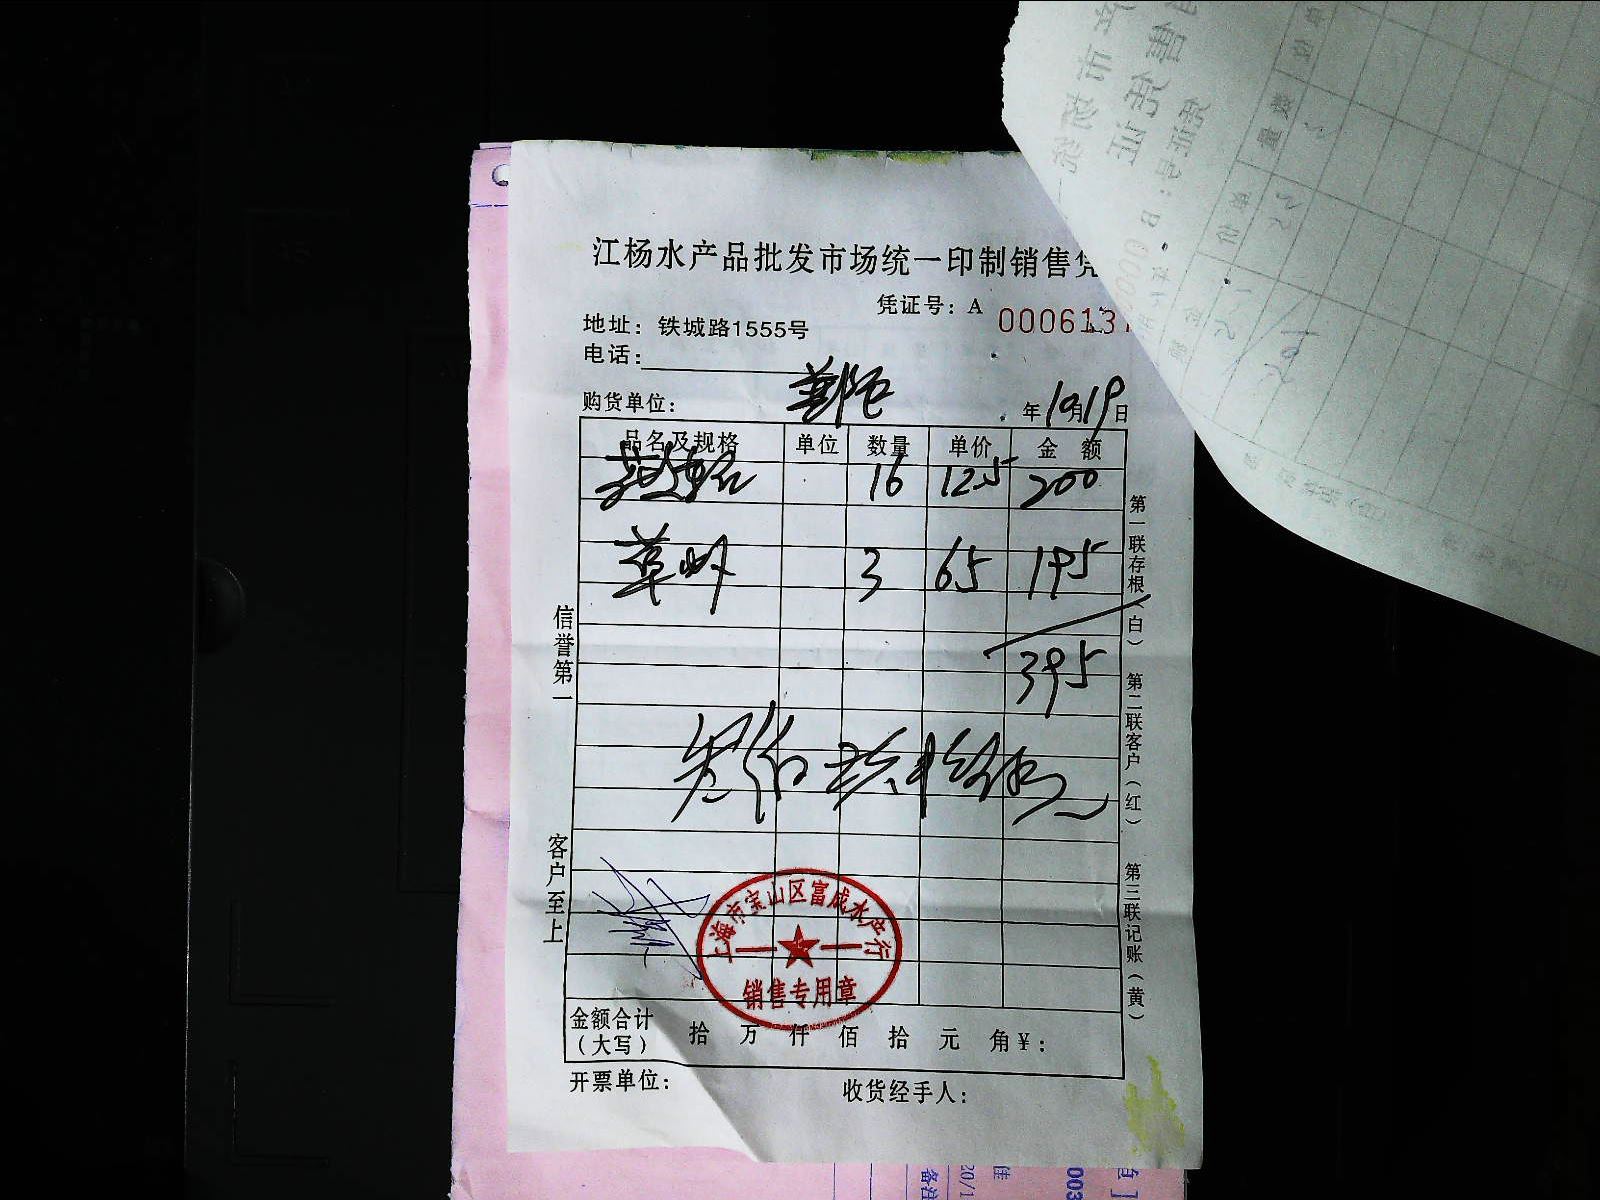 江杨水产品批发市场统一印制销售凭
凭证号：A 000613
地址：铁城路1555号
电话：
购货单位：
年10月19日
品名及规格 单位 数量 单价 金额
16 12.5 200
草虾 3 65 195
395
叁佰玖拾伍元
信誉第一
客户至上
第一联存根（白） 第二联客户（红） 第三联记账（黄）
上海市宝山区富成水产行
销售专用章
金额合计（大写） 拾 万 仟 佰 拾 元 角 ¥：
开票单位： 收货经手人：